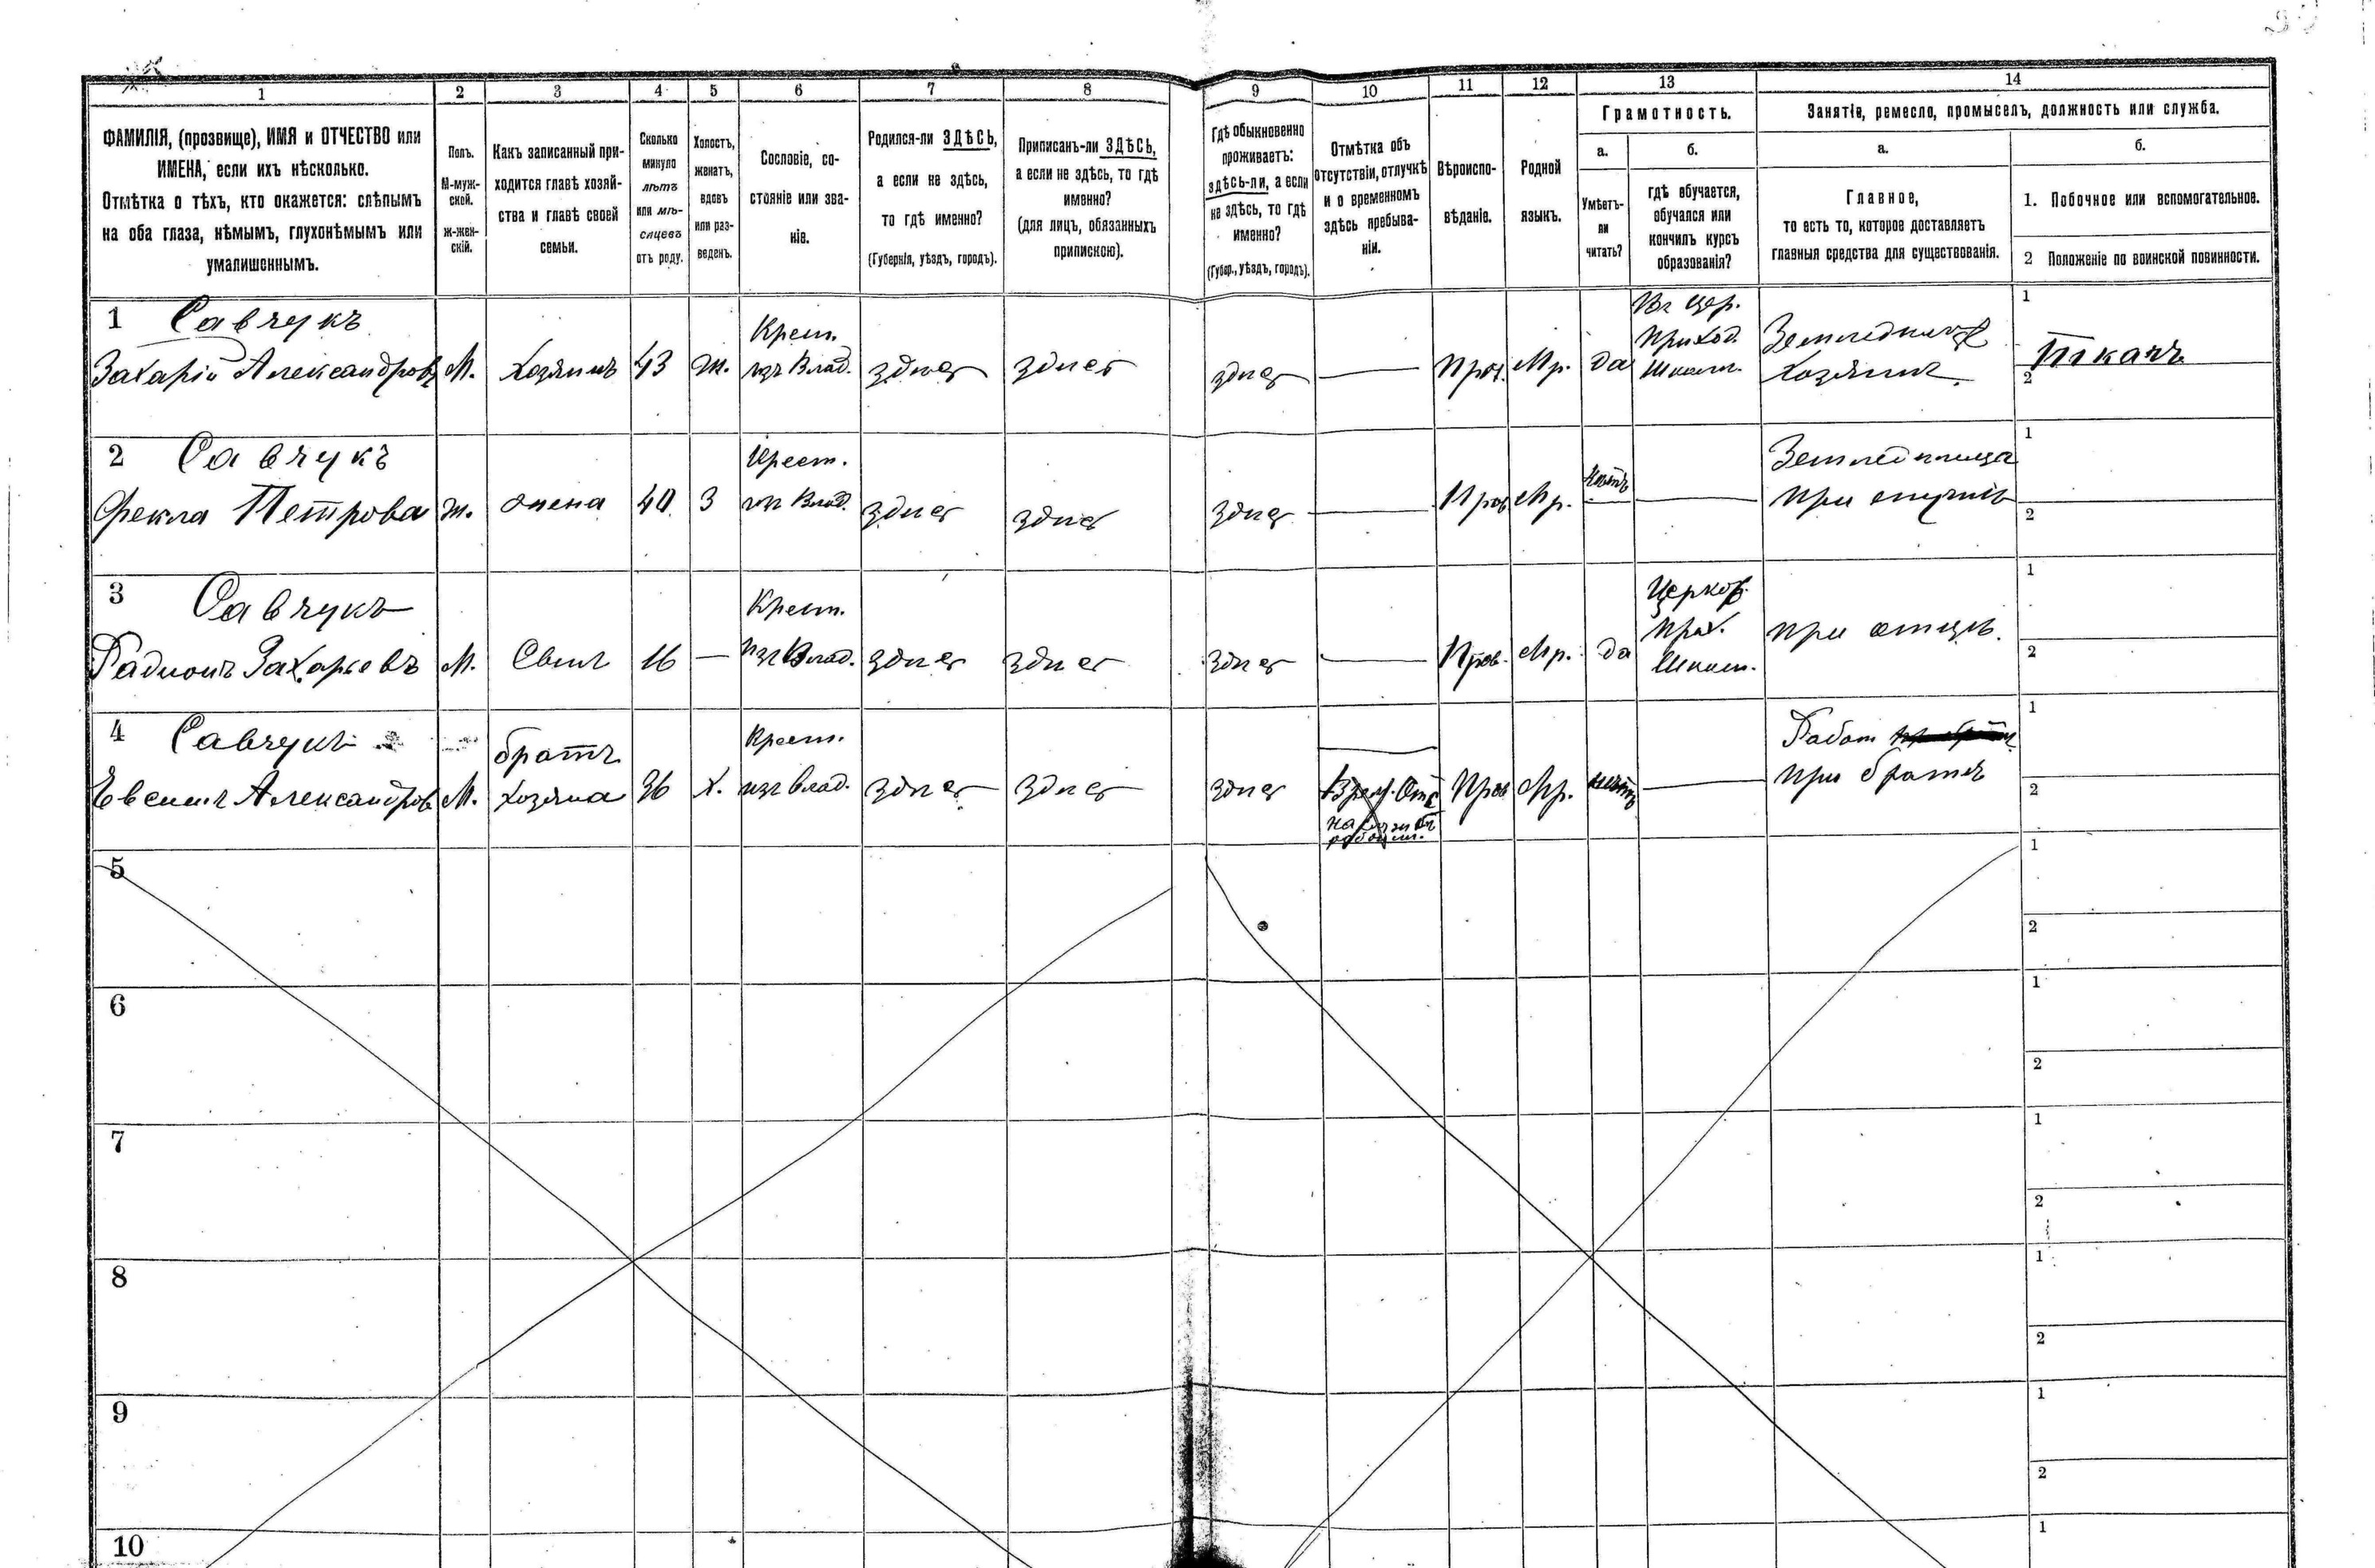 1 2 3 4 5 6 7 8 9 10 11 12 13 14
ФАМИЛІЯ, (прозвище), ИМЯ и ОТЧЕСТВО или
ИМЕНА, если ихъ нѣсколько.
Отмѣтка о тѣхъ, кто окажется: слѣпымъ
на оба глаза, нѣмымъ, глухонѣмымъ или
умалишеннымъ.
Полъ.
М-муж-
ской.
ж-жен-
скій.
Какъ записанный при-
ходится главѣ хозяй-
ства и главѣ своей
семьи.
Сколько
минуло
лѣтъ
или мѣ-
сяцевъ
отъ роду.
Холостъ,
женатъ,
вдовъ
или раз-
веденъ.
Сословіе, со-
стояніе или зва-
ніе.
Родился-ли ЗДѢСЬ,
а если не здѣсь,
то гдѣ именно?
(Губернія, уѣздъ, городъ).
Приписанъ-ли ЗДѢСЬ,
а если не здѣсь, то гдѣ
именно?
(для лицъ, обязанныхъ
припискою).
Гдѣ обыкновенно
проживаетъ:
здѣсь-ли, а если
не здѣсь, то гдѣ
именно?
(Губер., уѣздъ, городъ).
Отмѣтка объ
отсутствіи, отлучкѣ
и о временномъ
здѣсь пребыва-
ніи.
Вѣроиспо-
вѣданіе.
Родной
языкъ.
Грамотность.
а.
Умѣетъ-
ли
читать?
б.
гдѣ обучается,
обучался или
кончилъ курсъ
образованія?
Занятіе, ремесло, промыселъ, должность или служба.
а.
Главное,
то есть то, которое доставляетъ
главныя средства для существованія.
б.
1. Побочное или вспомогательное.
2 Положеніе по воинской повинности.
1 Савчукъ
Захарій Александровъ
М.
Хозяинъ
43
Ж.
Крест.
изъ Влад.
здѣсь
здѣсь
здѣсь
Прав.
Мр.
да
Въ Цер.
Приход.
Школ.
Хозяинъ
1
Ткачъ
2
2 Савчукъ
Фекла Петрова
Ж.
жена
40
З
Крест.
изъ Влад.
здѣсь
здѣсь
здѣсь
Прав
Мр.
нѣтъ
Земледѣлица
при
1
2
3 Савчукъ
Радионъ Захарьевъ
М.
Сынъ
16
Крест.
изъ Влад.
здѣсь
здѣсь
здѣсь
Прав.
Мр.
да
Церков.
Прих.
Школ.
при отцѣ.
1
2
4 Савчукъ
Евсений Александров
М.
братъ
хозяина
36
Х.
Крест.
изъ Влад.
здѣсь
здѣсь
здѣсь
Прав
Мр.
нѣтъ
Работ
при братѣ
1
2
5
1
2
6
1
2
7
1
2
8
1
2
9
1
2
10
1